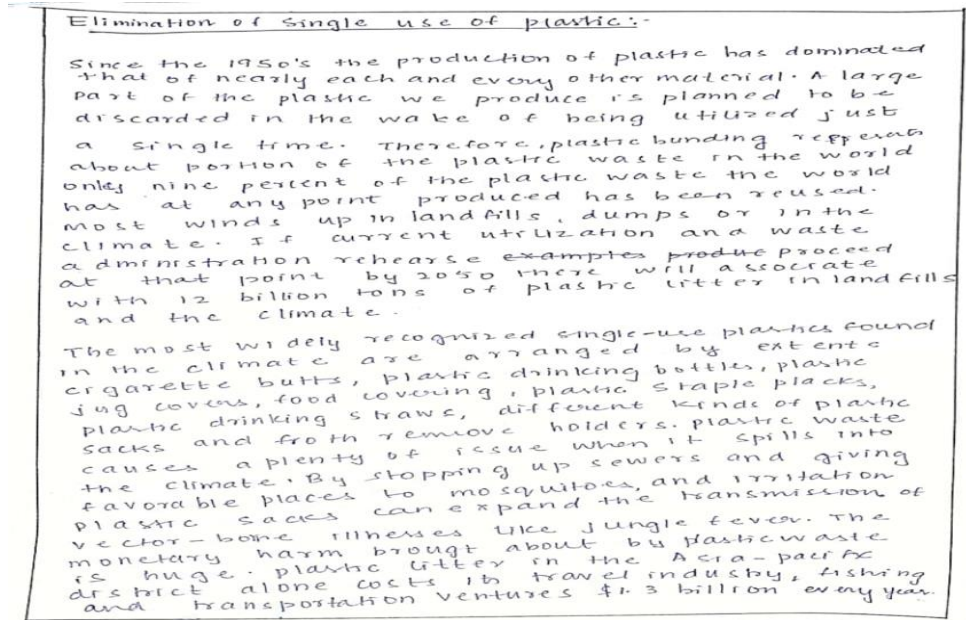 Elimination of single use of plastic:-
Since the 1950's the production of plastic has dominated
that of nearly each and every other material. A large
part of the plastic we produce is planned to be
discarded in the wake of being utilized just
a single time. Therefore, plastic bunding represents
about portion of the plastic waste in the world
only nine percent of the plastic waste the world
has at any point produced has been reused.
Most winds up in landfills, dumps or in the
climate. If current utilization and waste
administration rehearse examples produc proceed
at that point by 2050 there will associate
with 12 billion tons of plastic litter in landfills
and the climate.
The most widely recognized single-use plastics found
in the climate are arranged by extents
cigarette butts, plastic drinking bottles, plastic
jug covers, food covering, plastic staple placks,
plastic drinking straws, different kinds of plastic
sacks and froth remove holders. plastic waste
causes a plenty of issue when it spills into
the climate. By stopping up sewers and giving
favorable places to mosquitoes, and irritation
plastic sacks can expand the transmission of
vector-bone illnesses like jungle fever. The
monetary harm brougt about by plastic waste
is huge. plastic litter in the Asia-pacific
district alone costs its travel industry, fishing
and transportation ventures $1.3 billion every year.